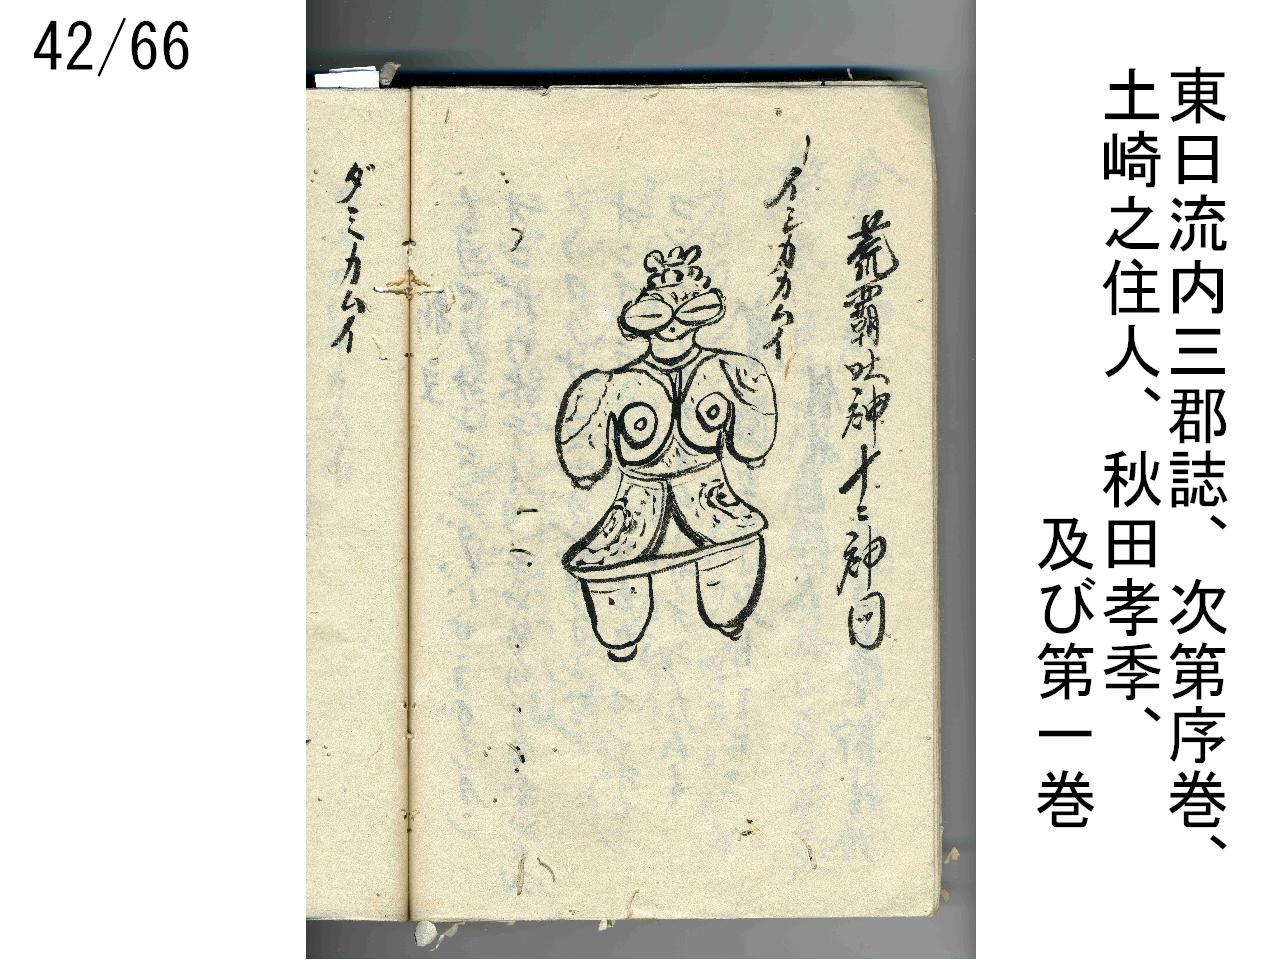 42/66
東日流内三郡誌、次第序巻、
土崎之住人、秋田孝季、
及び第一巻
荒覇吐神十二神図
イミカカムイ
ダミカムイ